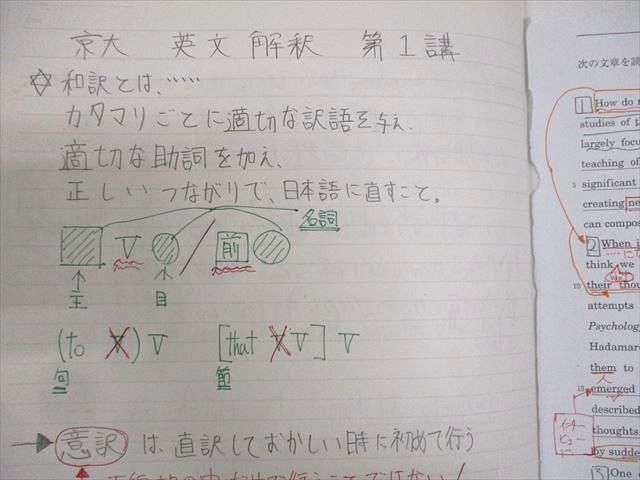 京大 英文解釈 第1講
☆和訳とは、……
カタマリごとに適切な訳語を与え、
適切な助詞を加え、
正しいつながりで、日本語に直すこと。
名詞
V 前
主 目
(to V) V [that V V] V
句 節
→ 意訳 は、直訳しておかしい時に初めて行う
次の文章を読
1 How do
studies of t
largely focu
teaching of
5 significant
creating ne
can compos
2 When i
think we
10 their thou
attempts
Psycholog
Hadamard
them to
人
15 emerged
described
thoughts
by sudde
3 One